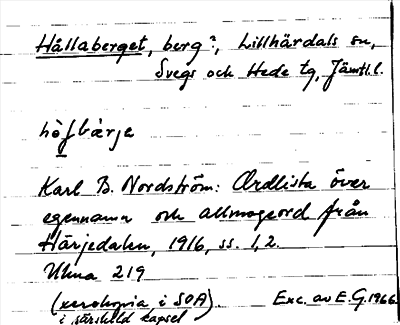 Hållaberget, berg?, Lillhärdals sn,
Svegs och Hede tg, Jämtl.l.
hò̱fbærje
Karl B. Nordström: Ordlista över
egennamn och allmogeord från
Härjedalen, 1916, ss. 1,2.
Ulma 219
(xerokopia i SOA)
i särskild kapsel
Exc. av E.G. 1966.